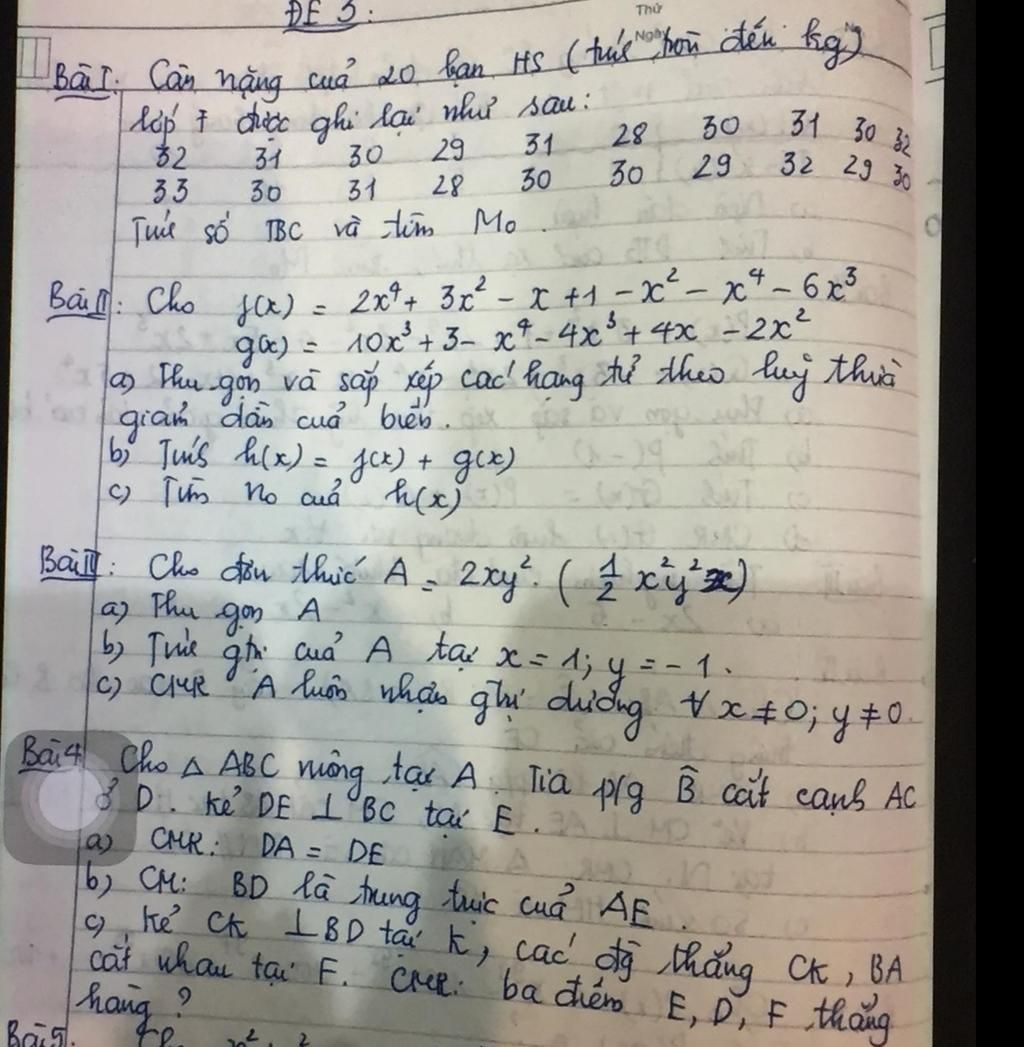 Thứ
Ngày
ĐỀ 5:
Bài I: Cân nặng của 20 bạn HS (tính tròn đến kg)
lớp 7 được ghi lại như sau:
32 31 30 29 31 28 30 31 30 32
33 30 31 28 30 30 29 32 29 30
Tính số TBC và tìm Mo.
Bài II: Cho f(x) = 2x⁴ + 3x² - x + 1 - x² - x⁴ - 6x³
g(x) = 10x³ + 3 - x⁴ - 4x³ + 4x - 2x²
a) Thu gọn và sắp xếp các hạng tử theo luỹ thừa
giảm dần của biến.
b) Tính h(x) = f(x) + g(x)
c) Tìm no của h(x)
Bài III: Cho đơn thức A = 2xy². (1/2 x²y²x)
a) Thu gọn A
b) Tính gtrị của A tại x = 1; y = -1.
c) CMR A luôn nhận gtrị dương ∀ x ≠ 0; y ≠ 0.
Bài 4 Cho △ ABC vuông tại A. Tia p/g B̂ cắt cạnh AC
ở D. Kẻ DE ⊥ BC tại E.
a) CMR: DA = DE
b) CM: BD là trung trực của AE.
c) Kẻ CK ⊥ BD tại K, các đg thẳng CK, BA
cắt nhau tại F. CMR: ba điểm E, D, F thẳng
hàng?
Bài 5.